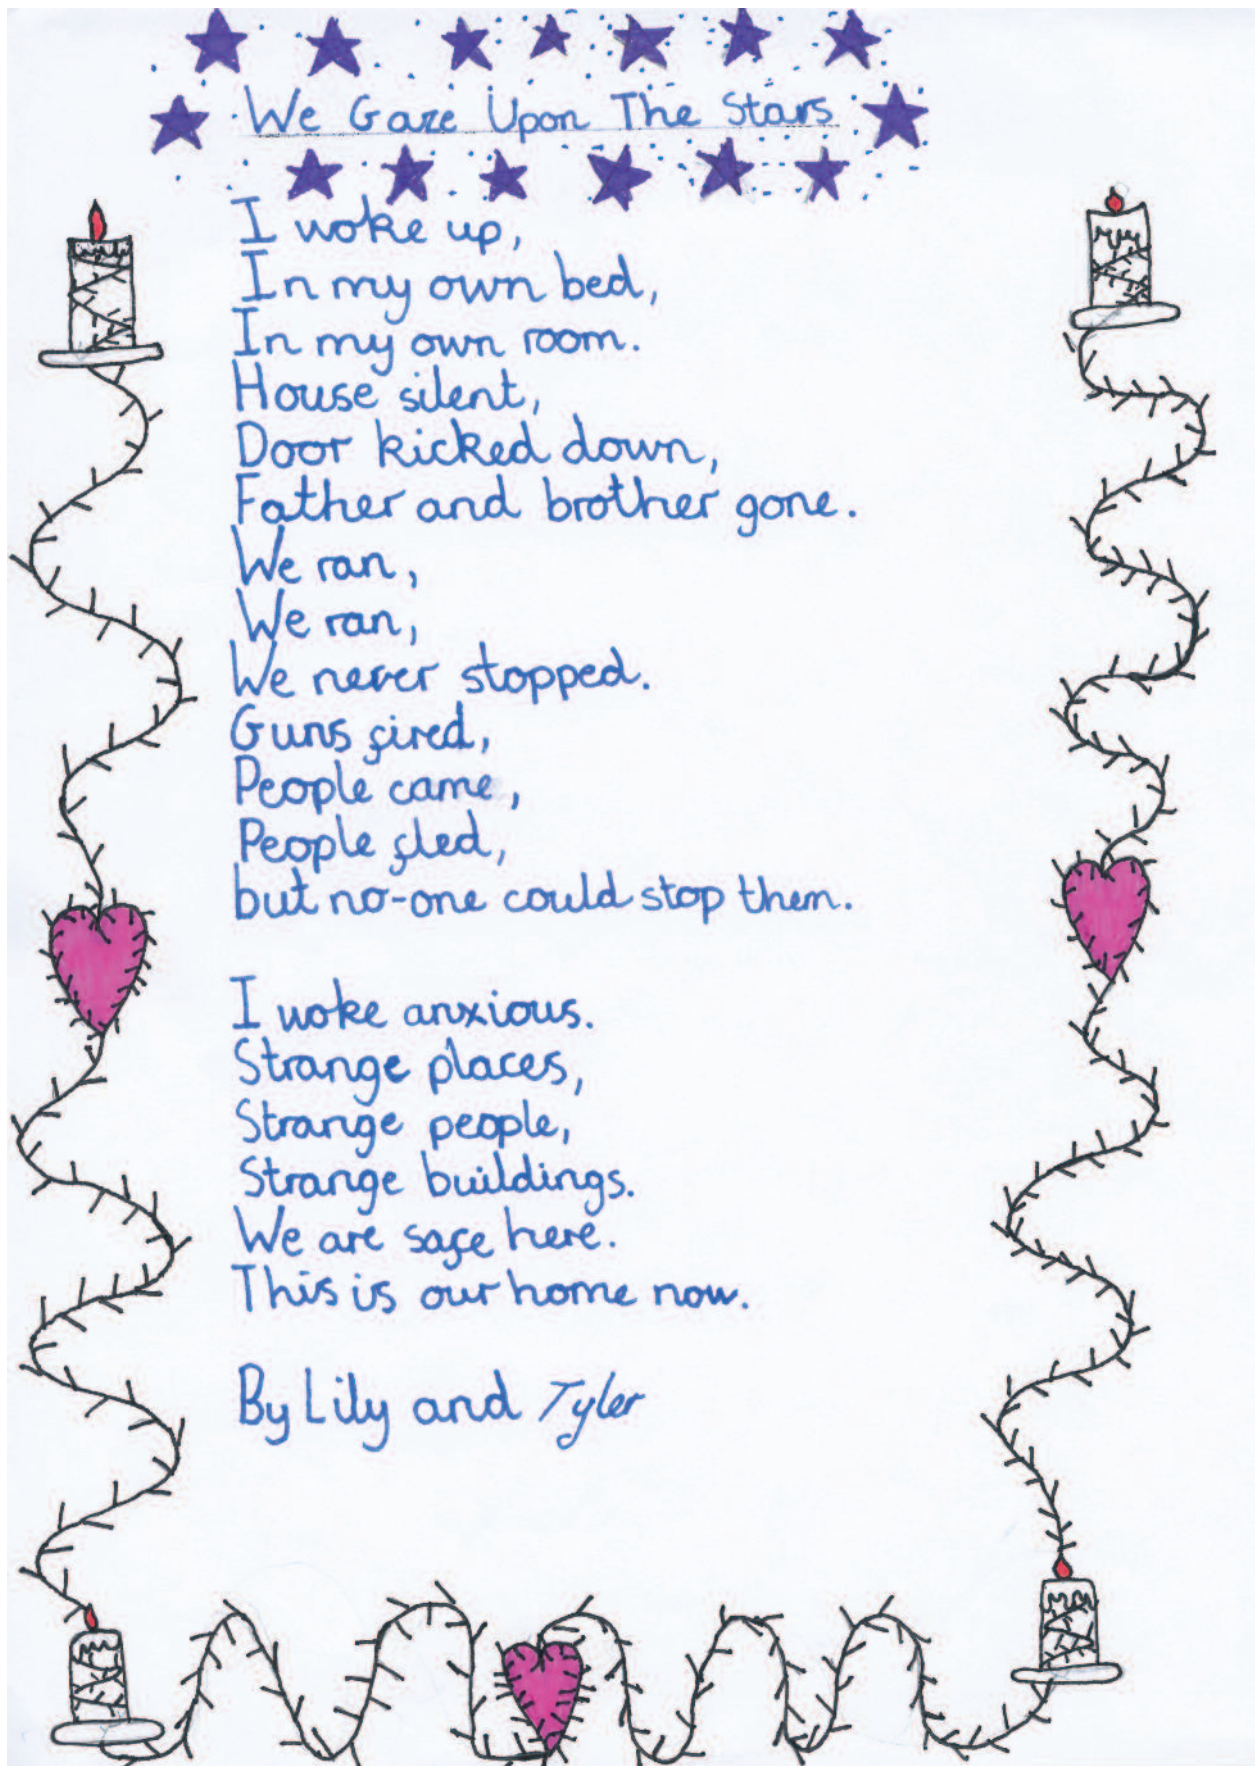 We Gaze Upon The Stars
I woke up,
In my own bed,
In my own room.
House silent,
Door kicked down,
Father and brother gone.
We ran,
We ran,
We never stopped.
Guns fired,
People came,
People fled,
but no-one could stop them.
I woke anxious.
Strange places,
Strange people,
Strange buildings.
We are safe here.
This is our home now.
By Lily and Tyler